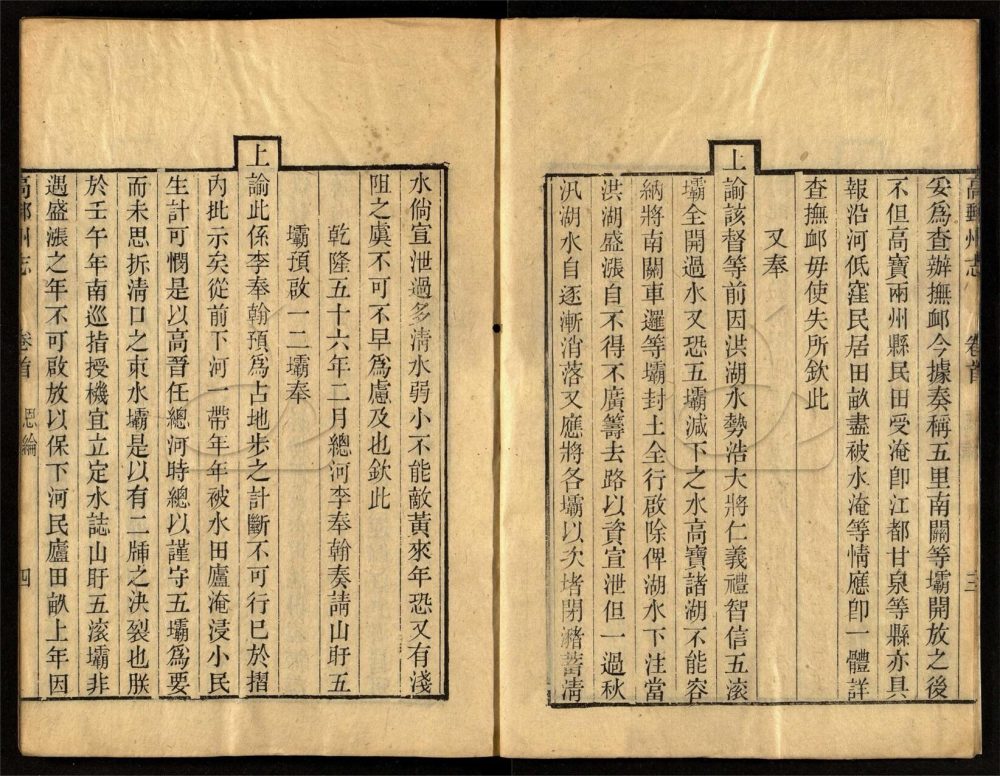 高郵州志 卷首 三
妥爲查辦撫䘏今據奏稱五里南關等壩開放之後
不但高寶兩州縣民田受淹卽江都甘泉等縣亦具
報沿河低窪民居田畝盡被水淹等情應卽一體詳
查撫䘏毋使失所欽此
又奉
上諭該督等前因洪湖水勢浩大將仁義禮智信五滾
壩全開過水又恐五壩減下之水高寶諸湖不能容
納將南關車邏等壩封土全行啟除俾湖水下注當
洪湖盛漲自不得不廣籌去路以資宣泄但一過秋
汛湖水自逐漸消落又應將各壩以次堵閉瀦蓄淸
水倘宣泄過多淸水弱小不能敵黃來年恐又有淺
阻之虞不可不早爲慮及也欽此
乾隆五十六年二月總河李奉翰奏請山盱五
壩預啟一二壩奉
上諭此係李奉翰預爲占地步之計斷不可行已於摺
內批示矣從前下河一帶年年被水田廬淹浸小民
生計可憫是以高晉任總河時總以謹守五壩爲要
而未思拆淸口之束水壩是以有二牐之決裂也朕
於壬午年南巡指授機宜立定水誌山盱五滾壩非
遇盛漲之年不可啟放以保下河民廬田畝上年因
高郵州志 卷首 恩綸 四